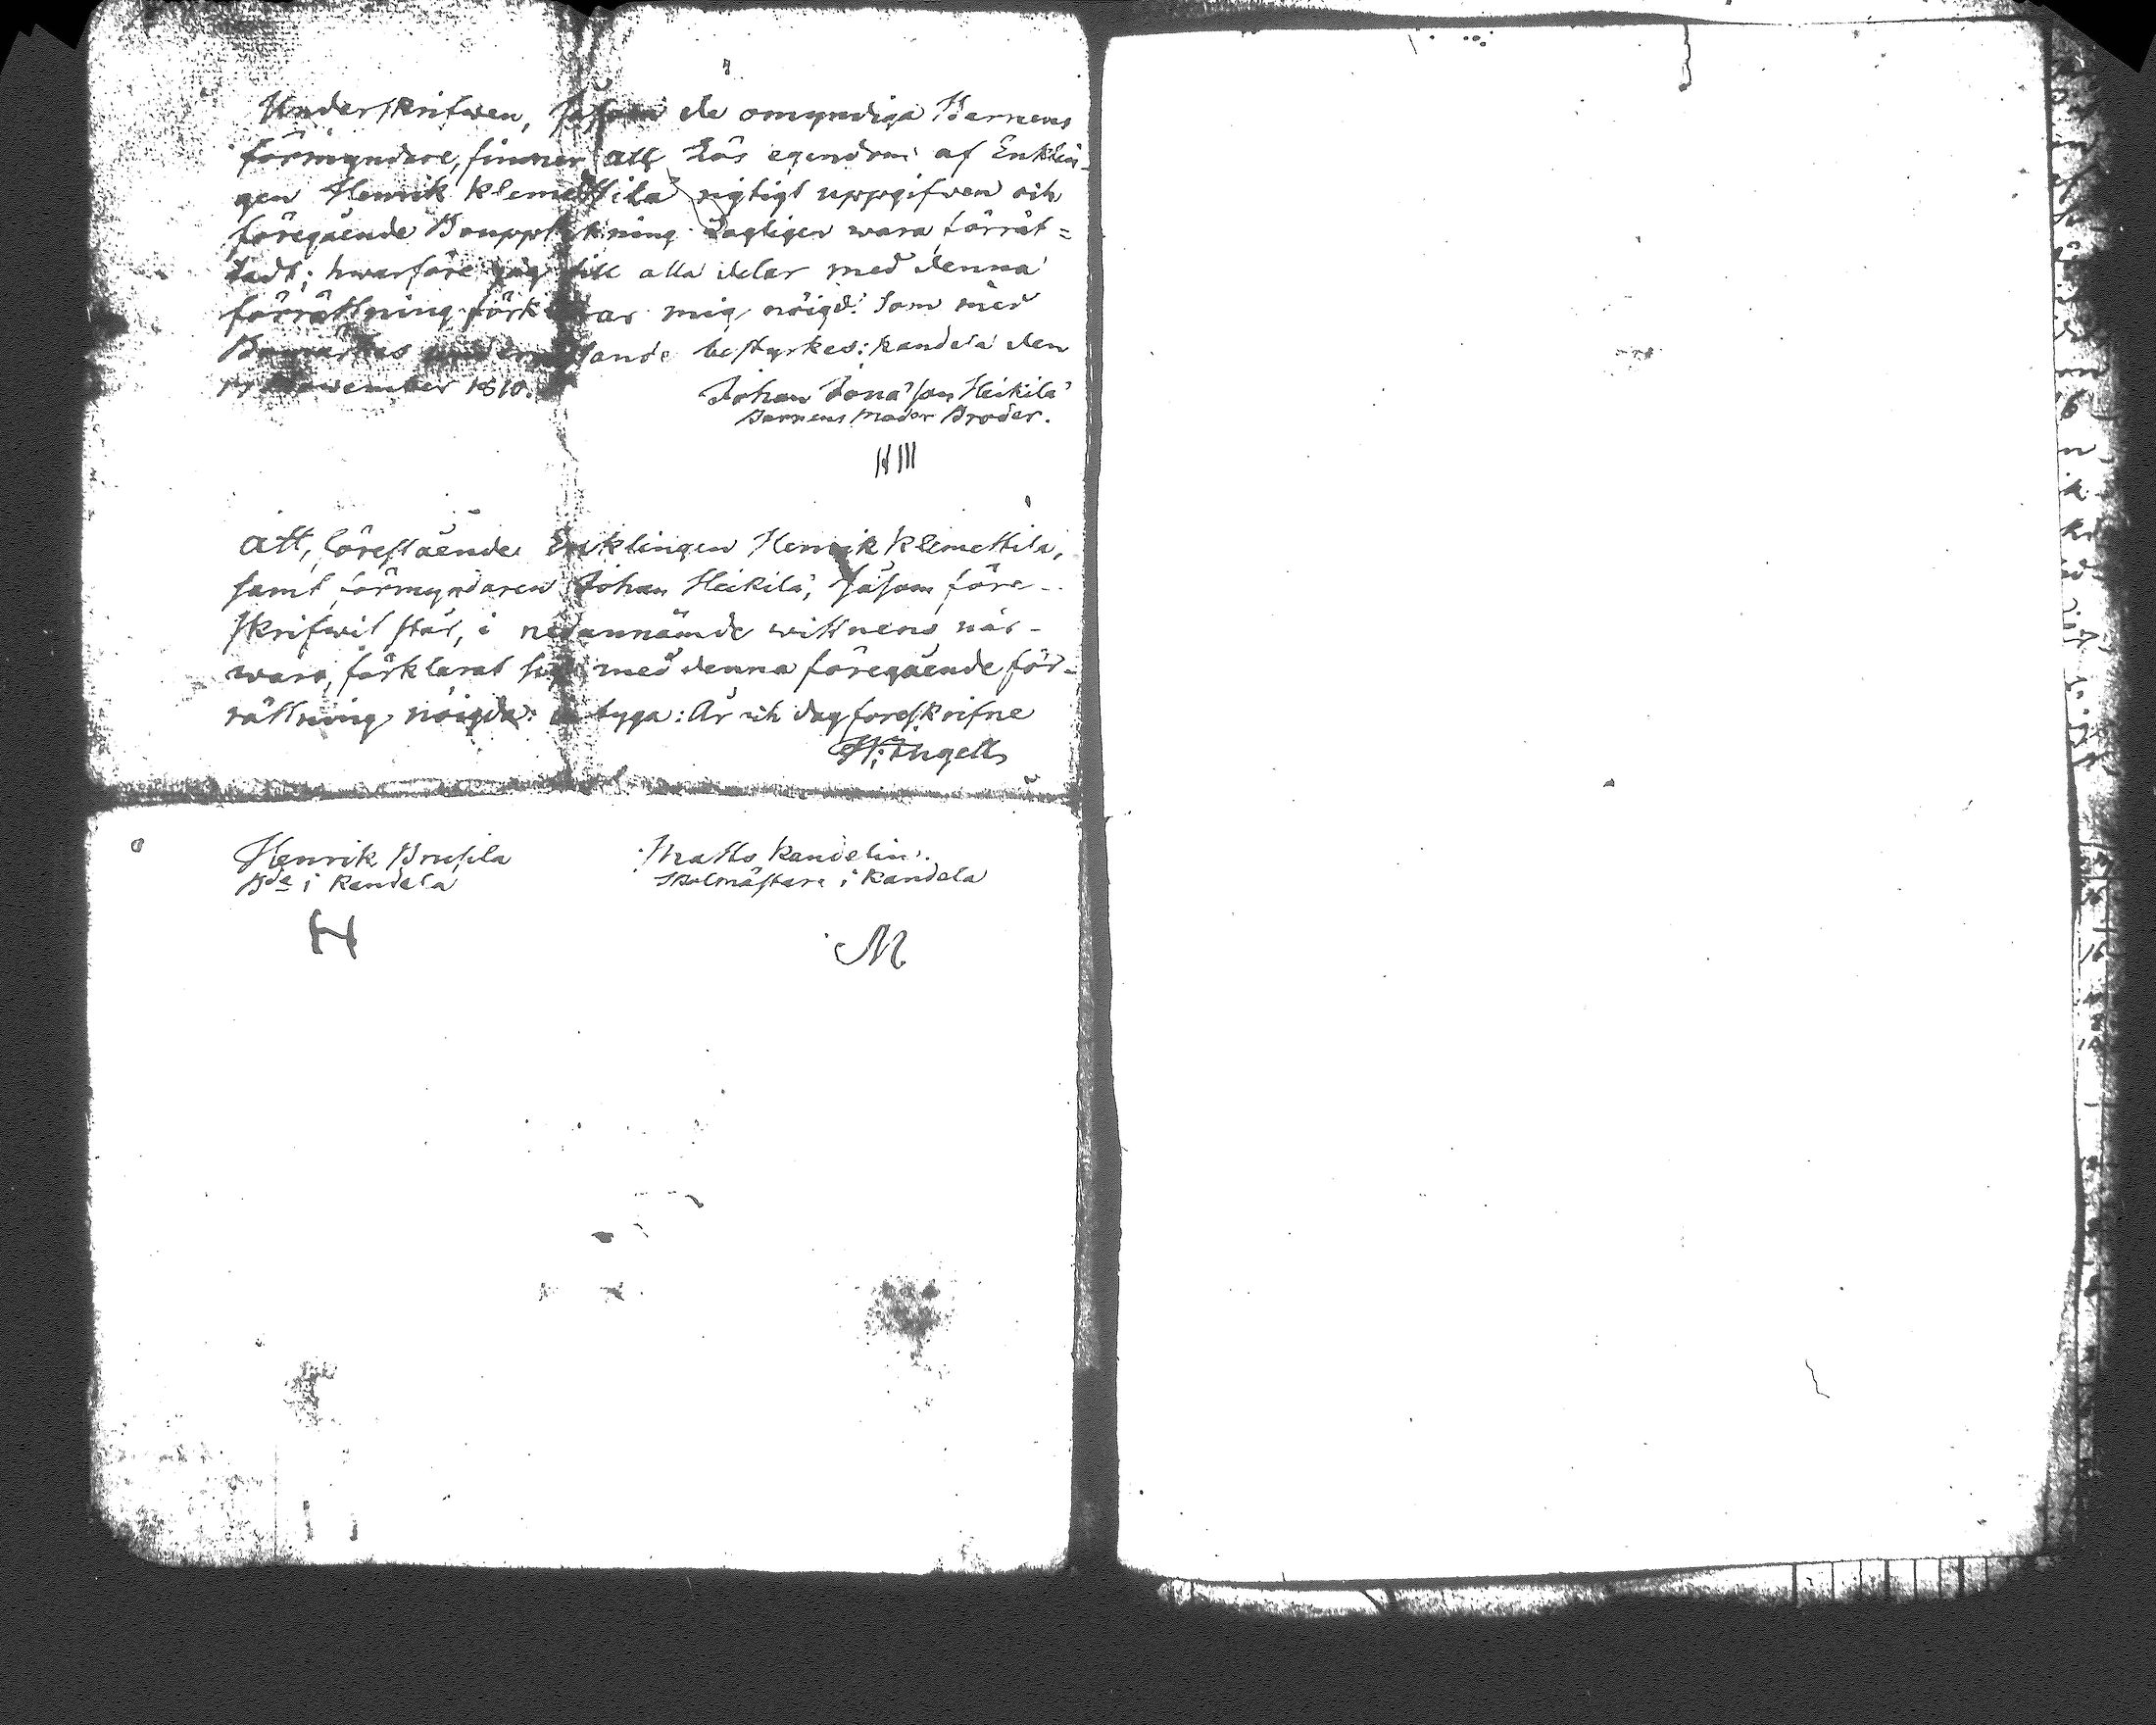 Underskrifwen, såsom de omyndiga Barnens
förmyndare, finner att Lös egendom af Enklin-
gen Henrik Klemettila rigtigt uppgifwen och
föregående Bouppteckning lagligen wara förrät=
tadt; hwarföre jag till alla delar med denna
förrättning förklarar mig nöigd: Som med
Bomärkes undersättande bestyrkes: Kandela den
November 1810.
Johan Jonasson Heikilä
Barnens Moder Broder.
Att, förestående Enklingen Henrik Klemettila,
samt förmyndaren Johan Heikilä, såsom före-
skrifwit står, i nedannämde wittnens när-
waro, förklarat sig med denna föregående för-
rättning nöigda: betyga: År och dag föreskrifne
Henrik Brusila
Bde i Kandela
Matts Kandelin.
Skolmästare i Kandela
H
M